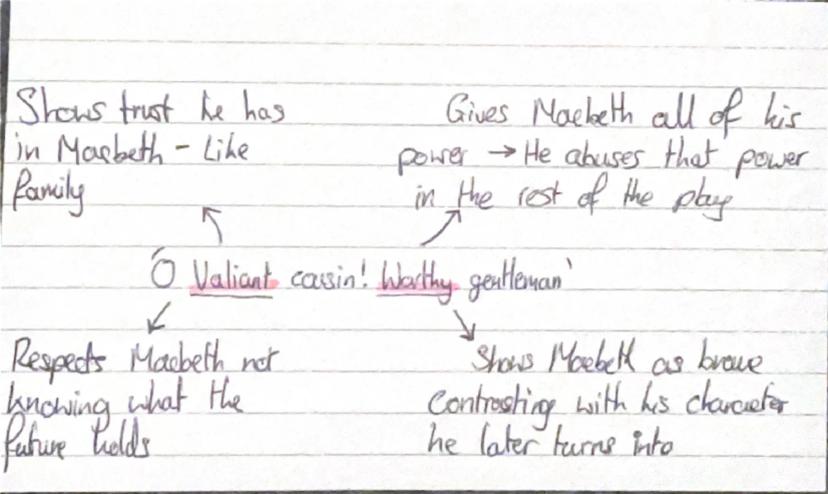 Shows trust he has
in Macbeth - Like
family
Gives Macbeth all of his
power → He abuses that power
in the rest of the play
'O Valiant cousin! Worthy gentleman'
Respects Macbeth not
knowing what the
future holds
Shows Macbeth as brave
Contrasting with his character
he later turns into